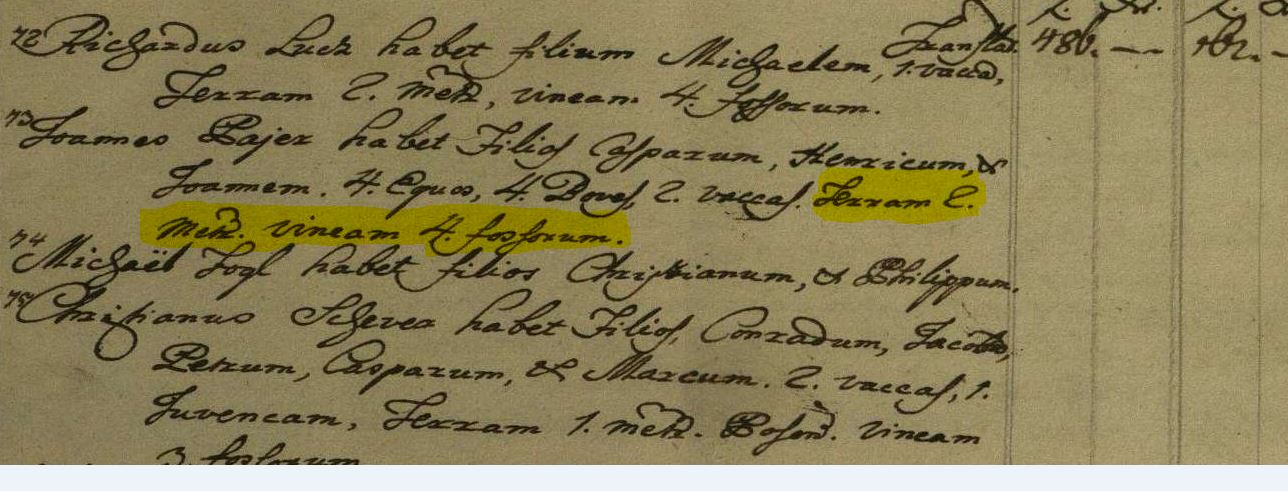 Translat. 486. — 162. —
72 Richardus Luck habet filium Michaelem, 1. vaccã,
Terram 2. metr., vineam 4. fossorum.
73 Joannes Pajer habet Filios Casparum, Henricum, &
Joannem. 4. Equos, 4. Boves, 2. vaccas. Terram 2.
metr. vineam 4. fossorum.
74 Michaël Fogl habet filios Christianum, & Philippum.
75 Christianus habet Filios, Conradum, Jacobũ,
Petrum, Casparum, & Marcum. 2. vaccas, 1.
Juvencam, Terram 1. metr. Poson. vineam
3. fossorum